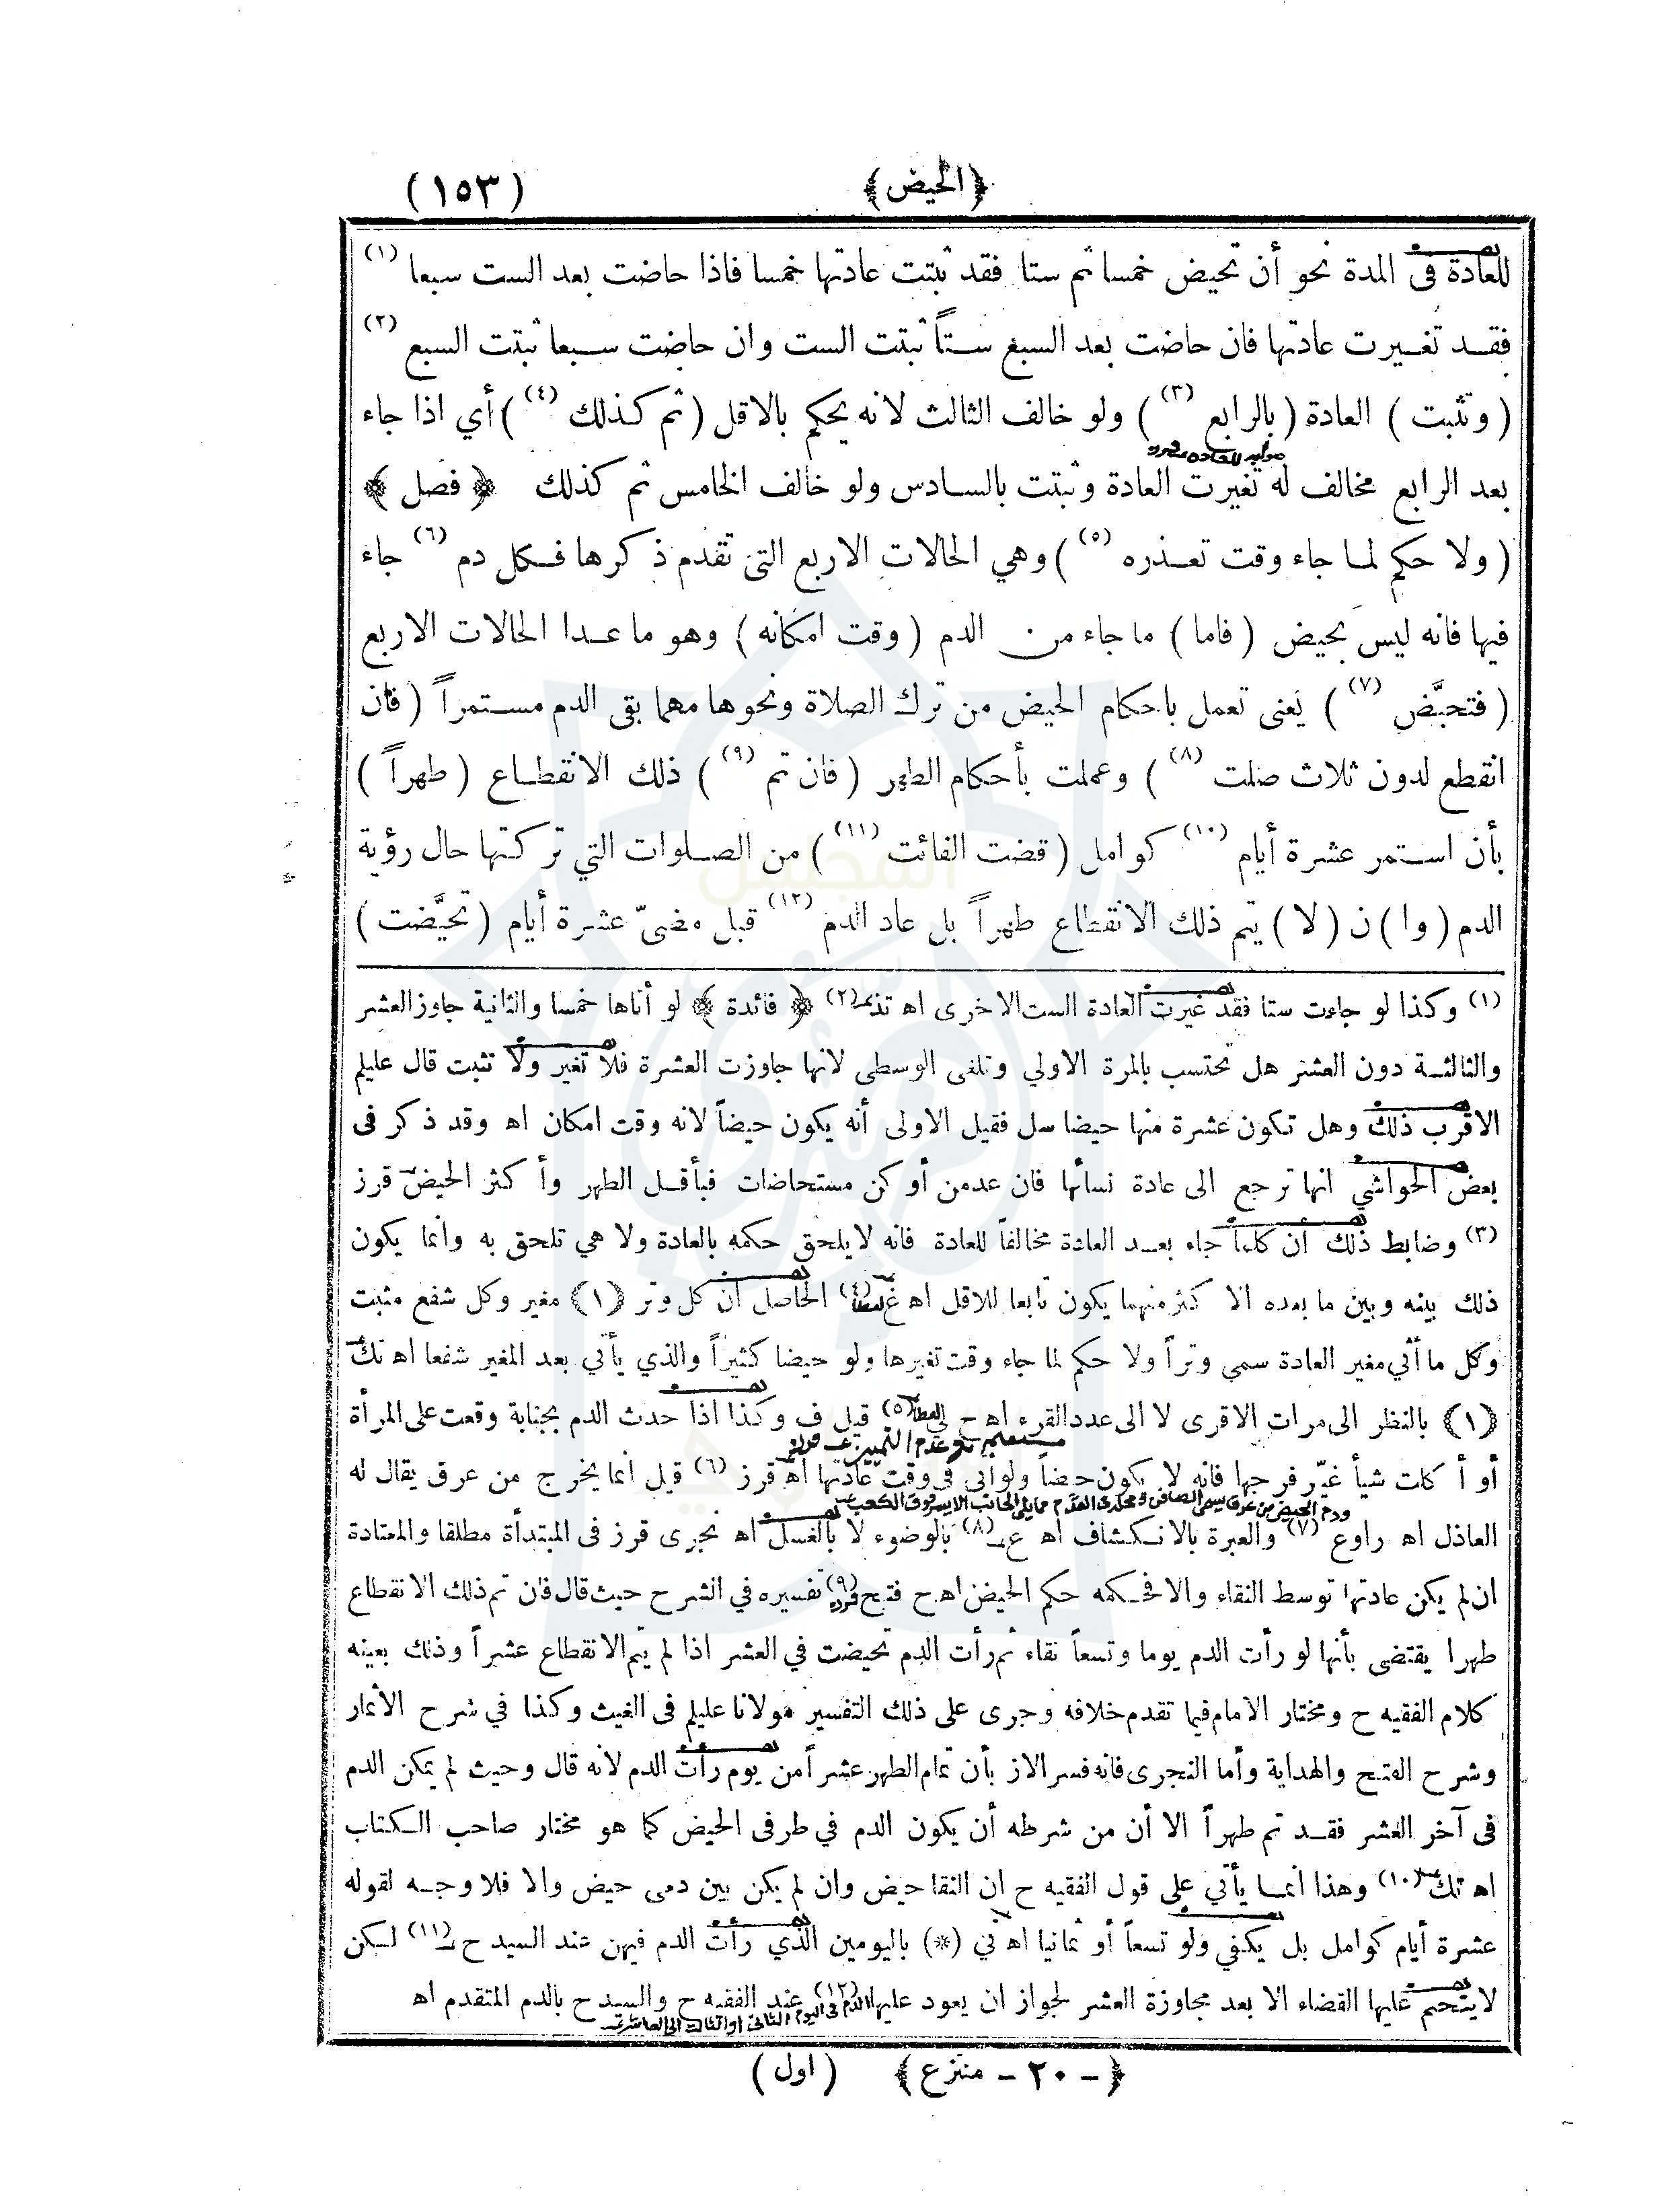 (١٥٣) ﴿الحيض﴾
للعادة فى المدة نحو أن تحيض خمسا ثم ستا فقد ثبتت عادتها خمسا فاذا حاضت بعد الست سبعا (١)
فقد تغيرت عادتها فان حاضت بعد السبع ستاً ثبتت الست وان حاضت سبعا ثبتت السبع (٢)
( وتثبت ) العادة ( بالرابع (٣) ) ولو خالف الثالث لانه يحكم بالاقل ( ثم كذلك (٤) ) أي اذا جاء
بعد الرابع مخالف له تغيرت العادة وثبتت بالسادس ولو خالف الخامس ثم كذلك ﴿ فصل ﴾
( ولا حكم لما جاء وقت تعذره (٥) ) وهي الحالات الاربع التى تقدم ذكرها فكل دم (٦) جاء
فيها فانه ليس بحيض ( فاما ) ما جاء من الدم ( وقت امكانه ) وهو ما عدا الحالات الاربع
( فتحيَّض (٧) ) يعنى تعمل باحكام الحيض من ترك الصلاة ونحوها مهما بقى الدم مستمراً ( فان
انقطع لدون ثلاث صلت (٨) ) وعملت بأحكام الطهر ( فان تم (٩) ) ذلك الانقطاع ( طهراً )
بأن استمر عشرة أيام (١٠) كوامل ( قضت الفائت (١١) ) من الصلوات التي تركتها حال رؤية
الدم ( وا ) ن ( لا ) يتم ذلك الانقطاع طهراً بل عاد الدم (١٢) قبل مضىّ عشرة أيام ( تحيَّضت )
(١) وكذا لو جاءت ستا فقد غيرت العادة الست الاخرى اه تذ (٢) ﴿ فائدة ﴾ لو أتاها خمسا والثانية جاوز العشر
والثالثة دون العشر هل تحتسب بالمرة الاولي وتلغى الوسطى لانها جاوزت العشرة فلا تغير ولا تثبت قال عليلم
الاقرب ذلك وهل تكون عشرة منها حيضا سل فقيل الاولى أنه يكون حيضاً لانه وقت امكان اه وقد ذكر فى
بعض الحواشي انها ترجع الى عادة نسائها فان عدمن أو كن مستحاضات فبأقل الطهر وأكثر الحيض قرز
(٣) وضابط ذلك أن كلما جاء بعد العادة مخالفاً للعادة فانه لا يلحق حكمه بالعادة ولا هي تلحق به وانما يكون
ذلك بينه وبين ما بعده الاكثر منهما يكون تابعا للاقل اه (٤) الحاصل أن كل وتر (١) مغير وكل شفع مثبت
وكل ما أتي مغير العادة سمى وتراً ولا حكم لما جاء وقت تغيرها ولو حيضا كثيراً والذي يأتي بعد المغير شفعا اه تك
(١) بالنظر الى مرات الاقرى لا الى عدد القرء اه (٥) قيل ف وكذا اذا حدث الدم بجناية وقعت على المرأة
أو أكلت شيأ غيّر فرجها فانه لا يكون حيضاً ولو أتى فى وقت عادتها اه قرز (٦) قيل انما يخرج من عرق يقال له
العاذل اه راوع (٧) والعبرة بالانكشاف اه ع (٨) بالوضوء لا بالغسل اه نجرى قرز فى المبتدأة مطلقا والمعتادة
ان لم يكن عادتها توسط النقاء والا فحكمه حكم الحيض اه ح فتح (٩) تفسيره في الشرح حيث قال فان تم ذلك الانقطاع
طهرا يقتضى بأنها لو رأت الدم يوما وتسعاً نقاء ثم رأت الدم تحيضت في العشر اذا لم يتم الانقطاع عشراً وذلك بعينه
كلام الفقيه ح ومختار الامام فيما تقدم خلافه وجرى على ذلك التفسير مولانا عليلم فى الغيث وكذا في شرح الأثمار
وشرح الفتح والهداية وأما النجرى فانه فسر الاز بأن تمام الطهر عشراً من يوم رأت الدم لانه قال وحيث لم يكن الدم
فى آخر العشر فقد تم طهراً الا أن من شرطه أن يكون الدم في طرفى الحيض كما هو مختار صاحب الكتاب
اه تك (١٠) وهذا انما يأتي على قول الفقيه ح ان النقا حيض وان لم يكن بين دمى حيض والا فلا وجه لقوله
عشرة أيام كوامل بل يكفي ولو تسعاً أو ثمانيا اه (*) باليومين الذي رأت الدم فيهن عند السيد ح (١١) لكن
لا يتحتم عليها القضاء الا بعد مجاوزة العشر لجواز ان يعود عليها الدم فى اليوم الثانى او الثالث الى العاشر (١٢) عند الفقيه ح والسيد ح بالدم المتقدم اه
﴿ – ٢٠ – منتزع ﴾ ( اول )